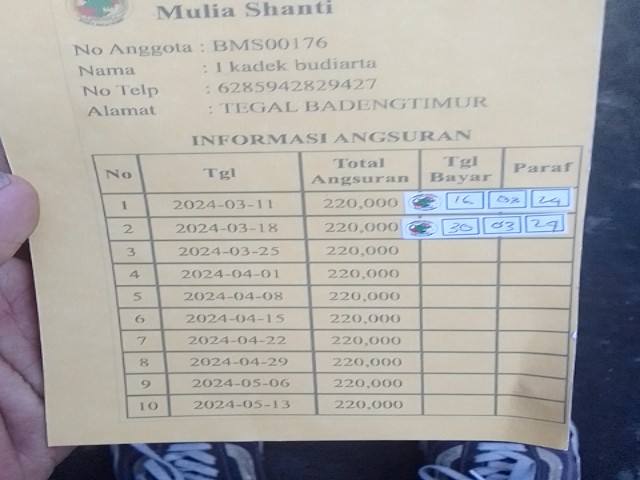 Mulia Shanti
No Anggota : BMS00176
Nama : I kadek budiarta
No Telp : 6285942829427
Alamat : TEGAL BADENGTIMUR
INFORMASI ANGSURAN
No Tgl Total Angsuran Tgl Bayar Paraf
1 2024-03-11 220,000 16 03 24
2 2024-03-18 220,000 30 03 24
3 2024-03-25 220,000
4 2024-04-01 220,000
5 2024-04-08 220,000
6 2024-04-15 220,000
7 2024-04-22 220,000
8 2024-04-29 220,000
9 2024-05-06 220,000
10 2024-05-13 220,000